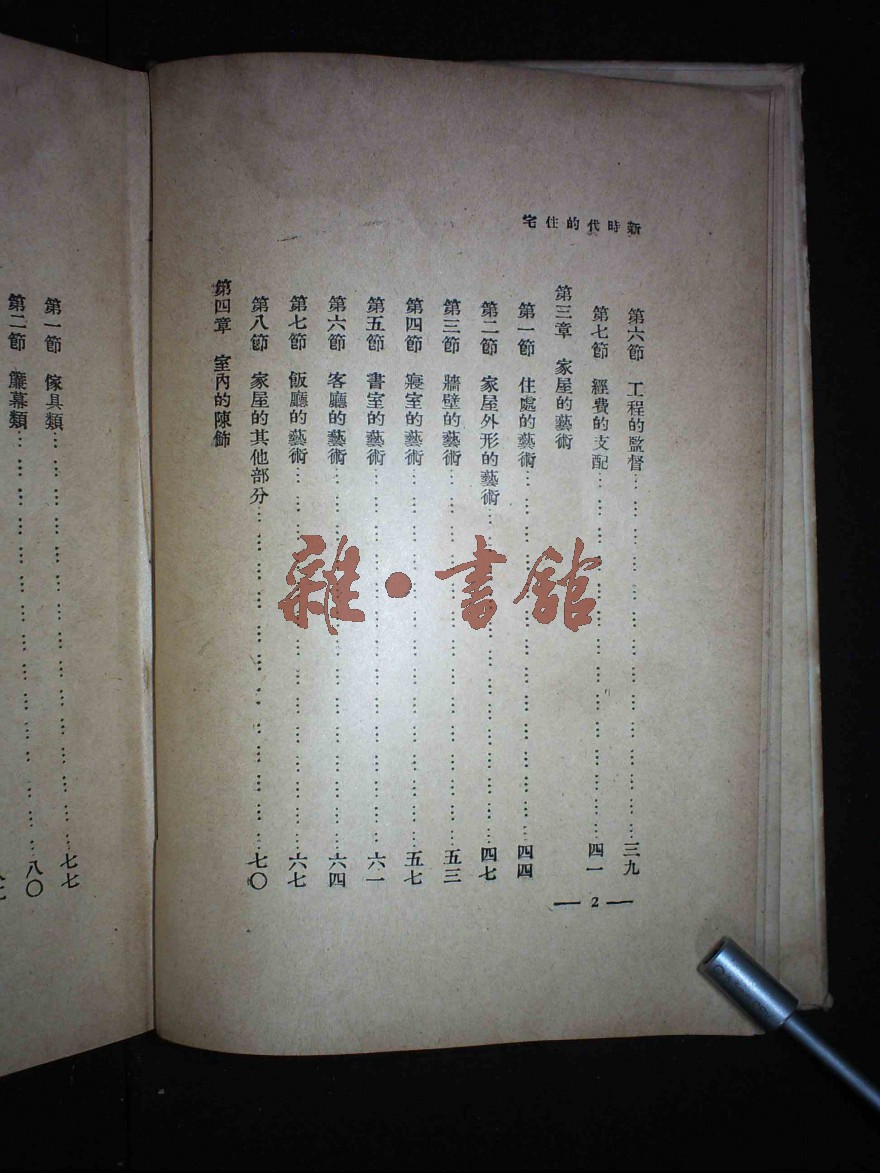 新時代的住宅
第六節 工程的監督……三九
第七節 經費的支配……四一
第三章 家屋的藝術
第一節 住處的藝術……四四
第二節 家屋外形的藝術……四七
第三節 牆壁的藝術……五三
第四節 寢室的藝術……五七
第五節 書室的藝術……六一
第六節 客廳的藝術……六四
第七節 飯廳的藝術……六七
第八節 家屋的其他部分……七〇
第四章 室內的陳飾
— 2 —
第一節 傢具類……七七
第二節 簾幕類……八〇
雜·書館